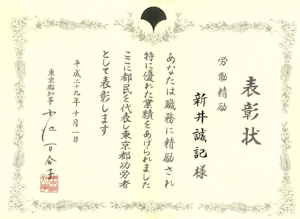 表彰状
労働精励
新井誠記様
あなたは職務に精励され
特に優れた業績をあげられました
ここに都民を代表し東京都功労者
として表彰します
平成二十九年十月一日
東京都知事 小池百合子